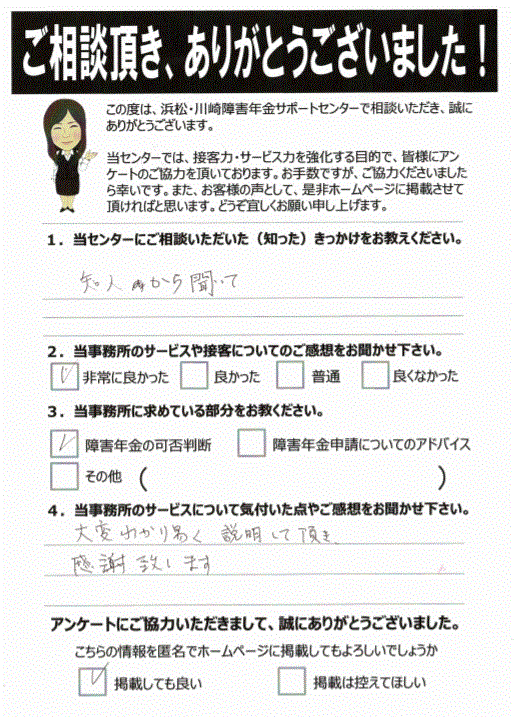 ご相談頂き、ありがとうございました！
この度は、浜松・川崎障害年金サポートセンターで相談いただき、誠に
ありがとうございます。
当センターでは、接客力・サービス力を強化する目的で、皆様にアン
ケートのご協力を頂いております。お手数ですが、ご協力くださいました
ら幸いです。また、お客様の声として、是非ホームページに掲載させて
頂ければと思います。どうぞ宜しくお願い申し上げます。
１．当センターにご相談いただいた（知った）きっかけをお教えください。
知人から聞いて
２．当事務所のサービスや接客についてのご感想をお聞かせ下さい。
非常に良かった 良かった 普通 良くなかった
３．当事務所に求めている部分をお教ください。
障害年金の可否判断 障害年金申請についてのアドバイス
その他 （ ）
４．当事務所のサービスについて気付いた点やご感想をお聞かせ下さい。
大変わかり易く 説明して頂き、
感謝致します
アンケートにご協力いただきまして、誠にありがとうございました。
こちらの情報を匿名でホームページに掲載してもよろしいでしょうか
掲載しても良い 掲載は控えてほしい